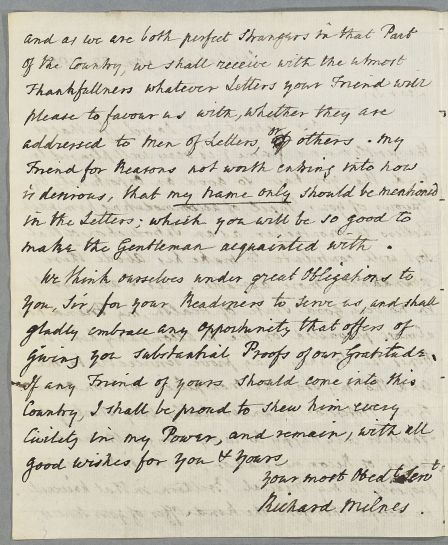 and as we are both perfect Strangers in that Part
of the Country, we shall receive with the utmost
Thankfullness whatever Letters your Friend will
please to favour us with, whether they are
addressed to Men of Letters, or others. My
Friend for Reasons not worth entring into now
is desirous, that my name only should be mentioned
in the Letters; which you will be so good to
make the Gentleman acquainted with.
We think ourselves under great Obligations to
you, Sir, for your Readiness to serve us, and shall
gladly embrace any Opportunity that offers of
giving you substantial Proofs of our Gratitude.
If any Friend of yours should come into this
Country, I shall be proud to shew him every
Civility in my Power, and remain, with all
good wishes for you & yours,
your most Obedt. Servt.
Richard Milnes.